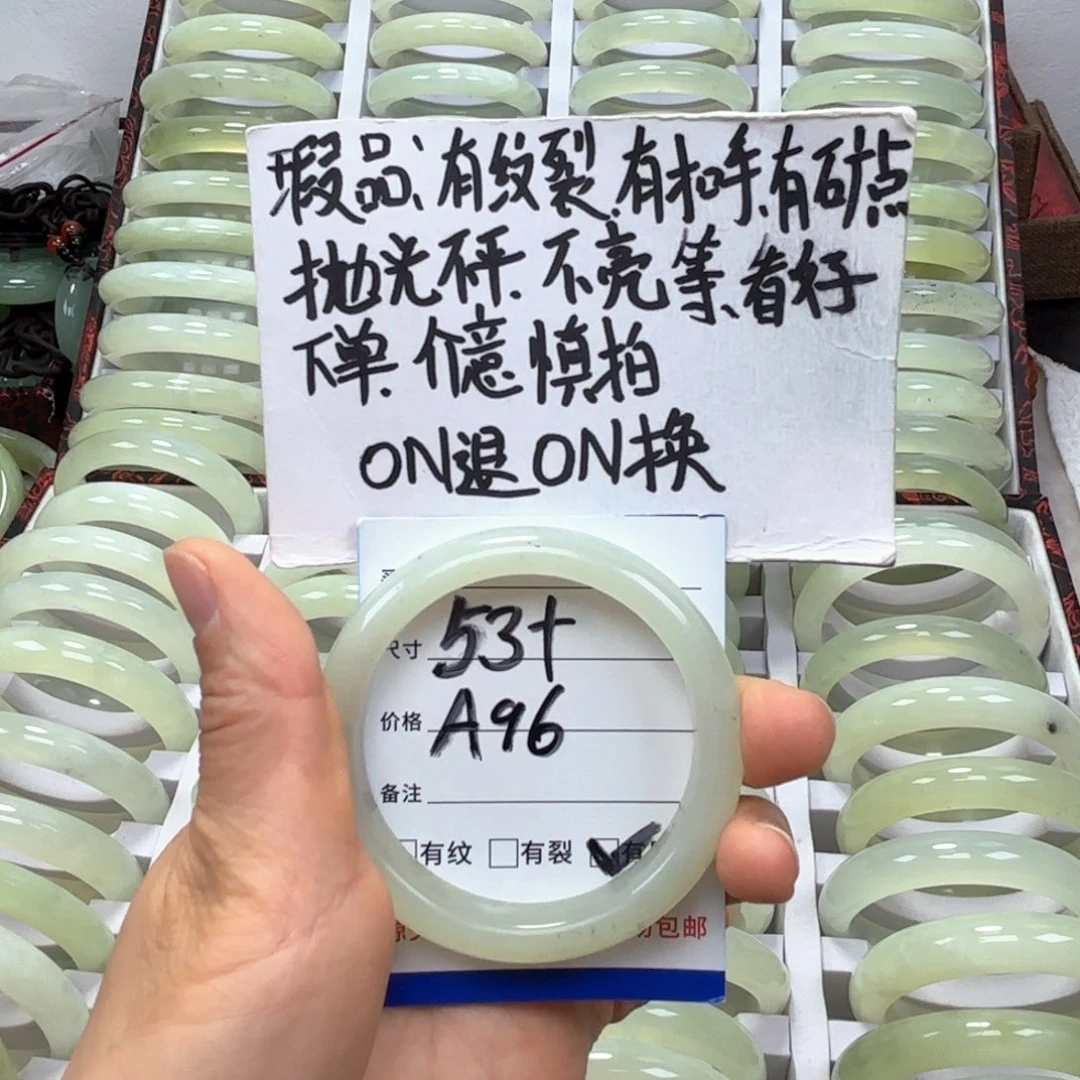 瑕品、有纹裂、有扣手、有矿点
抛光不平、不亮等、看好
下单、介意慎拍
ON退ON换
尺寸 53+
价格 A96
备注
有纹 有裂 有
包邮